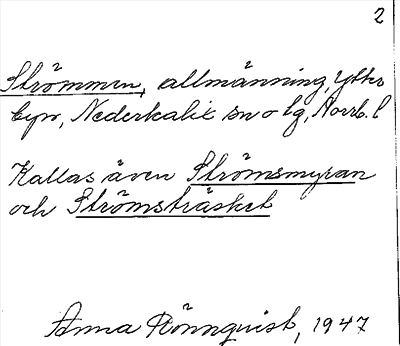 2
Strömmen, allmänning, Ytter
byn, Nederkalix sn o tg, Norrb. l
Kallas även Strömsmyran
och Strömsträsket
Anna Rönnquist, 1947